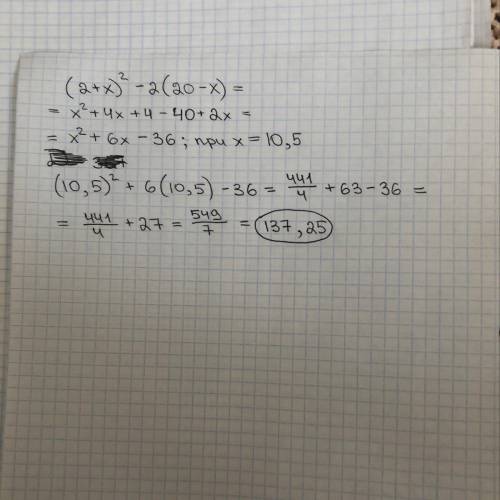 (2+x)² - 2(20-x) =
= x² + 4x + 4 - 40 + 2x =
= x² + 6x - 36; при x = 10,5
(10,5)² + 6(10,5) - 36 = 441/4 + 63 - 36 =
= 441/4 + 27 = 549/7 = 137,25